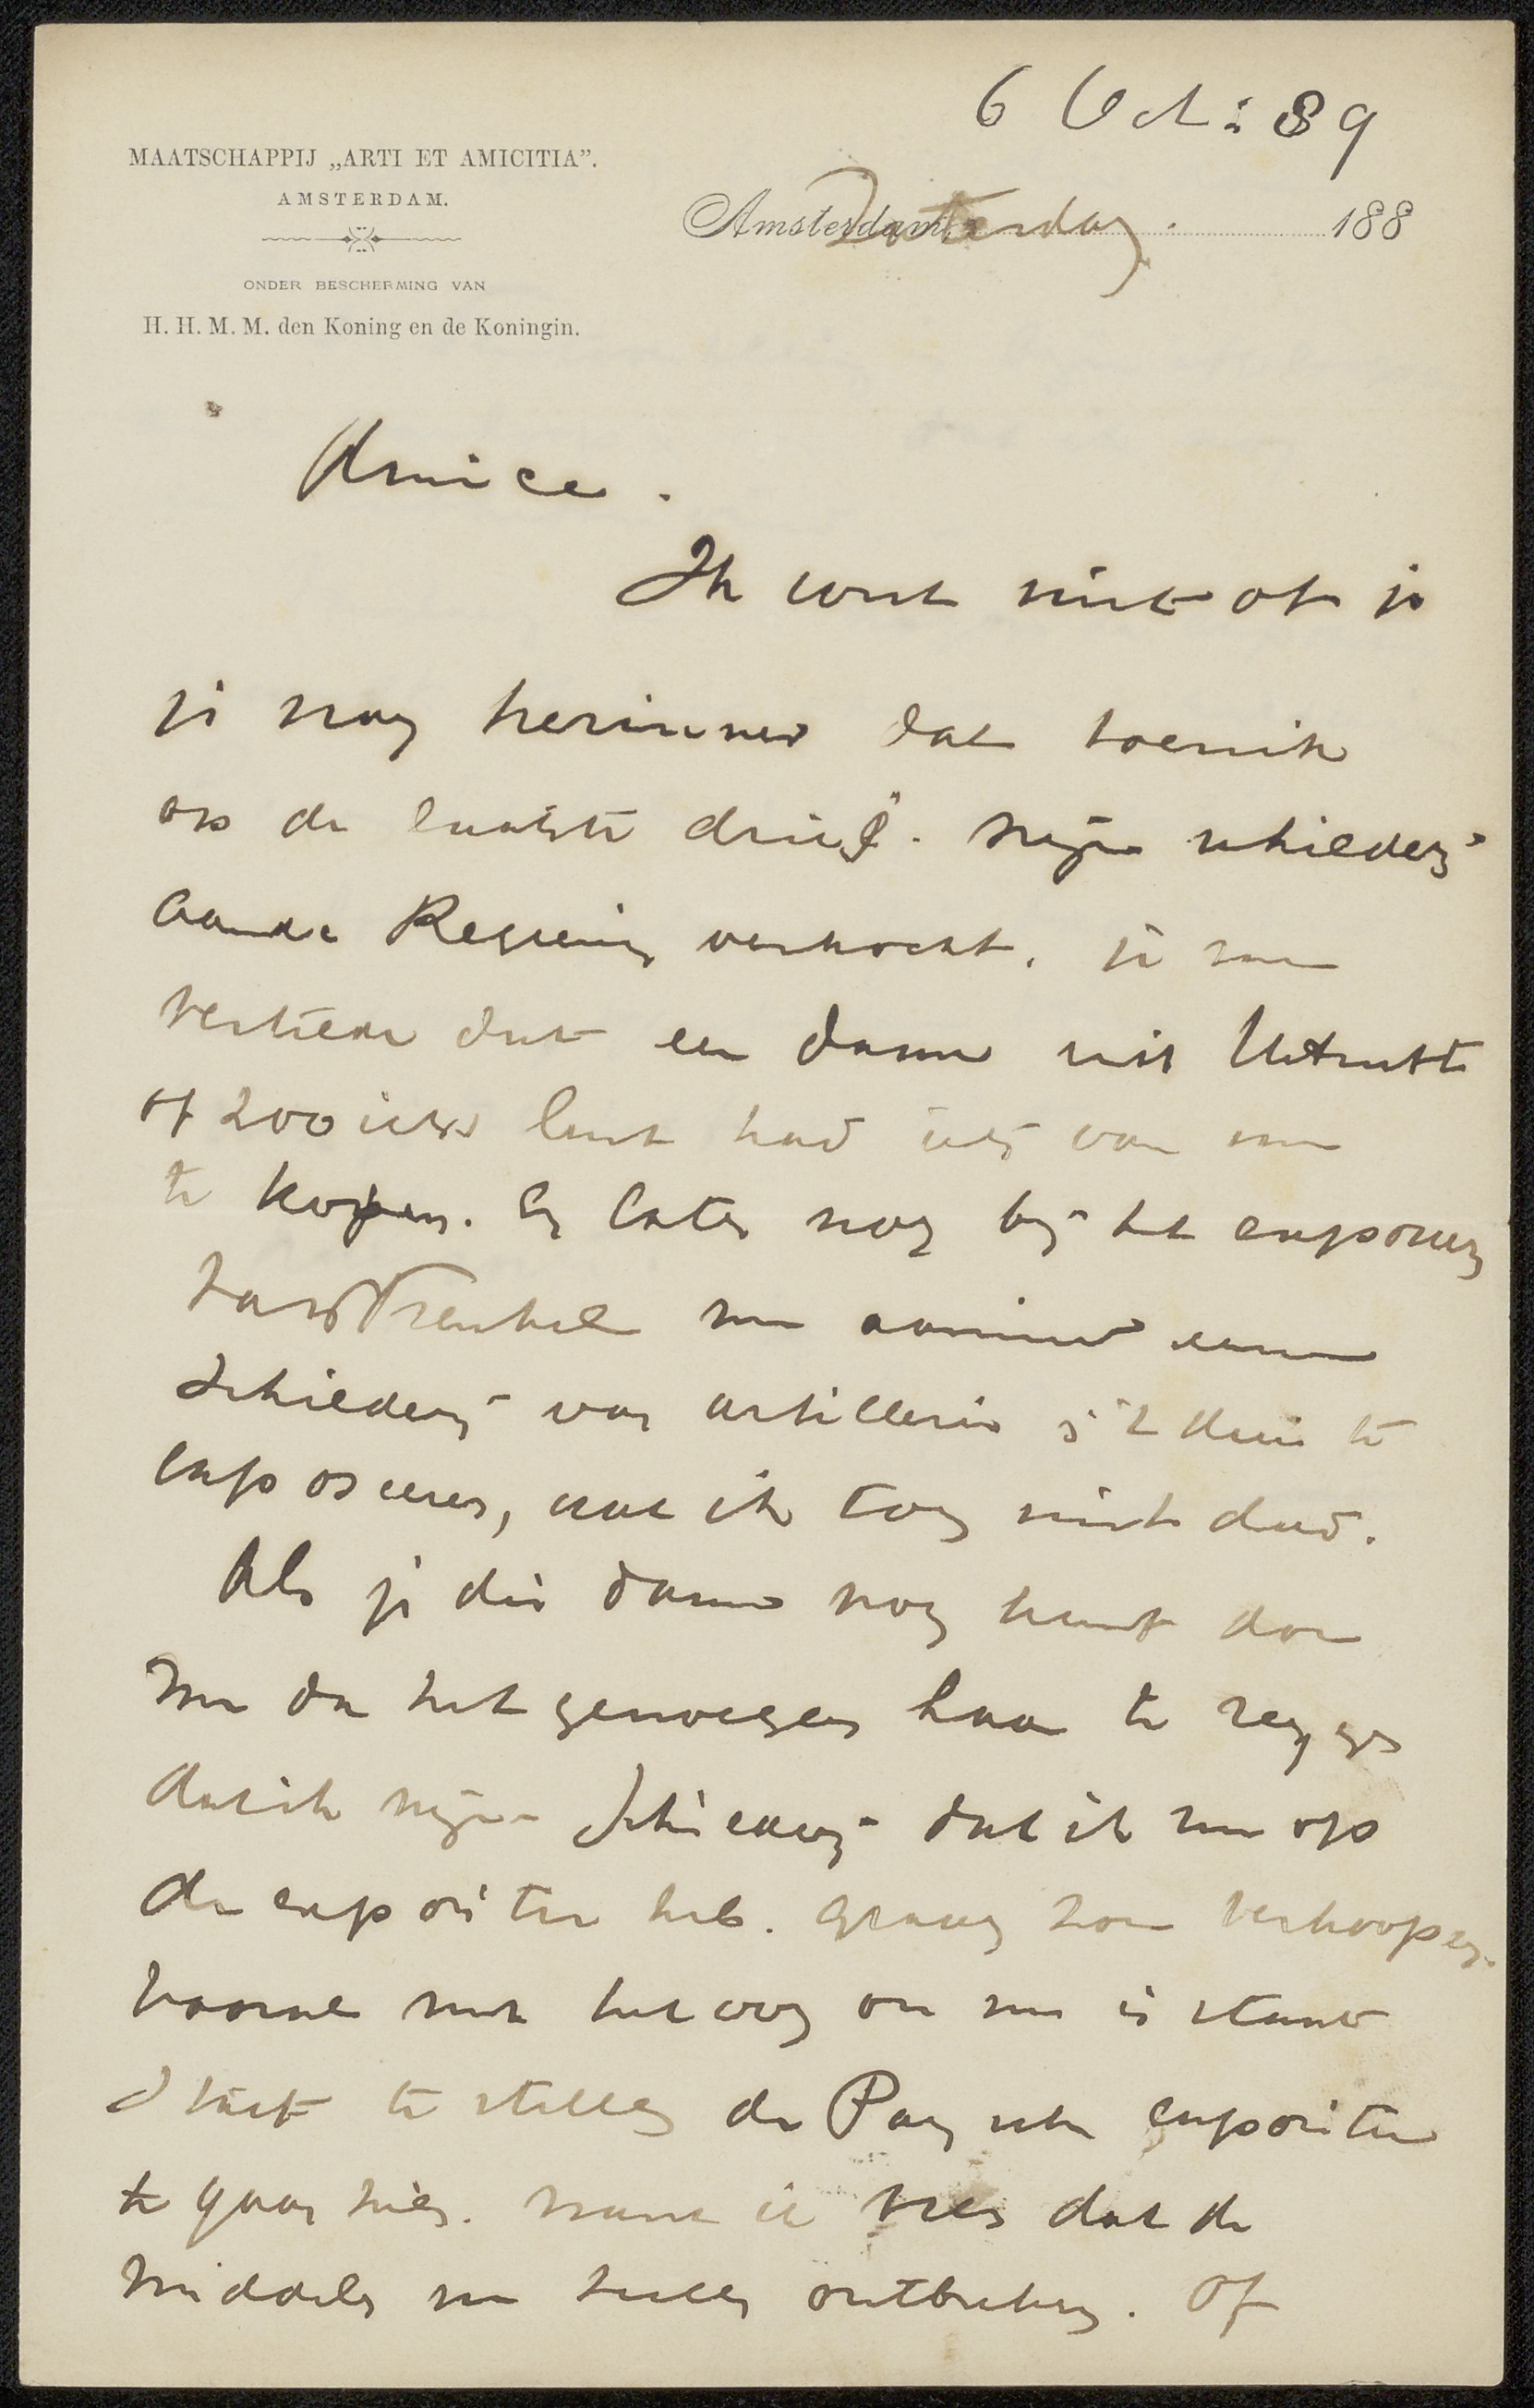 6 Oct: 89
MAATSCHAPPIJ „ARTI ET AMICITIA”.
AMSTERDAM.
ONDER BESCHERMING VAN
H. H. M. M. den Koning en de Koningin.
Amsterdam, Zaterdag. 188
Amice.
Ik weet niet of je
je nog herinner dat toen ik
op de laatste mijn schilderij
aan de Regeering verkocht. je me
vertelde dat een dame uit Utrecht
of zoo iets lust had iets van me
te koopen. En later nog bij het exposeren
had me aanried eene
schilderij van artillerie in 't duin te
exposeeren, wat ik toen niet deed.
Als je die dame nog kent doe
me dan het genoegen haar te zeggen
dat ik mijn schilderij dat ik nu op
de expositie heb. graag zou verkoopen.
vooral met het oog om me in staat
te stellen de Parysche expositie
te gaan zien. want ik vrees dat de
middelen me zullen ontbreken. Of